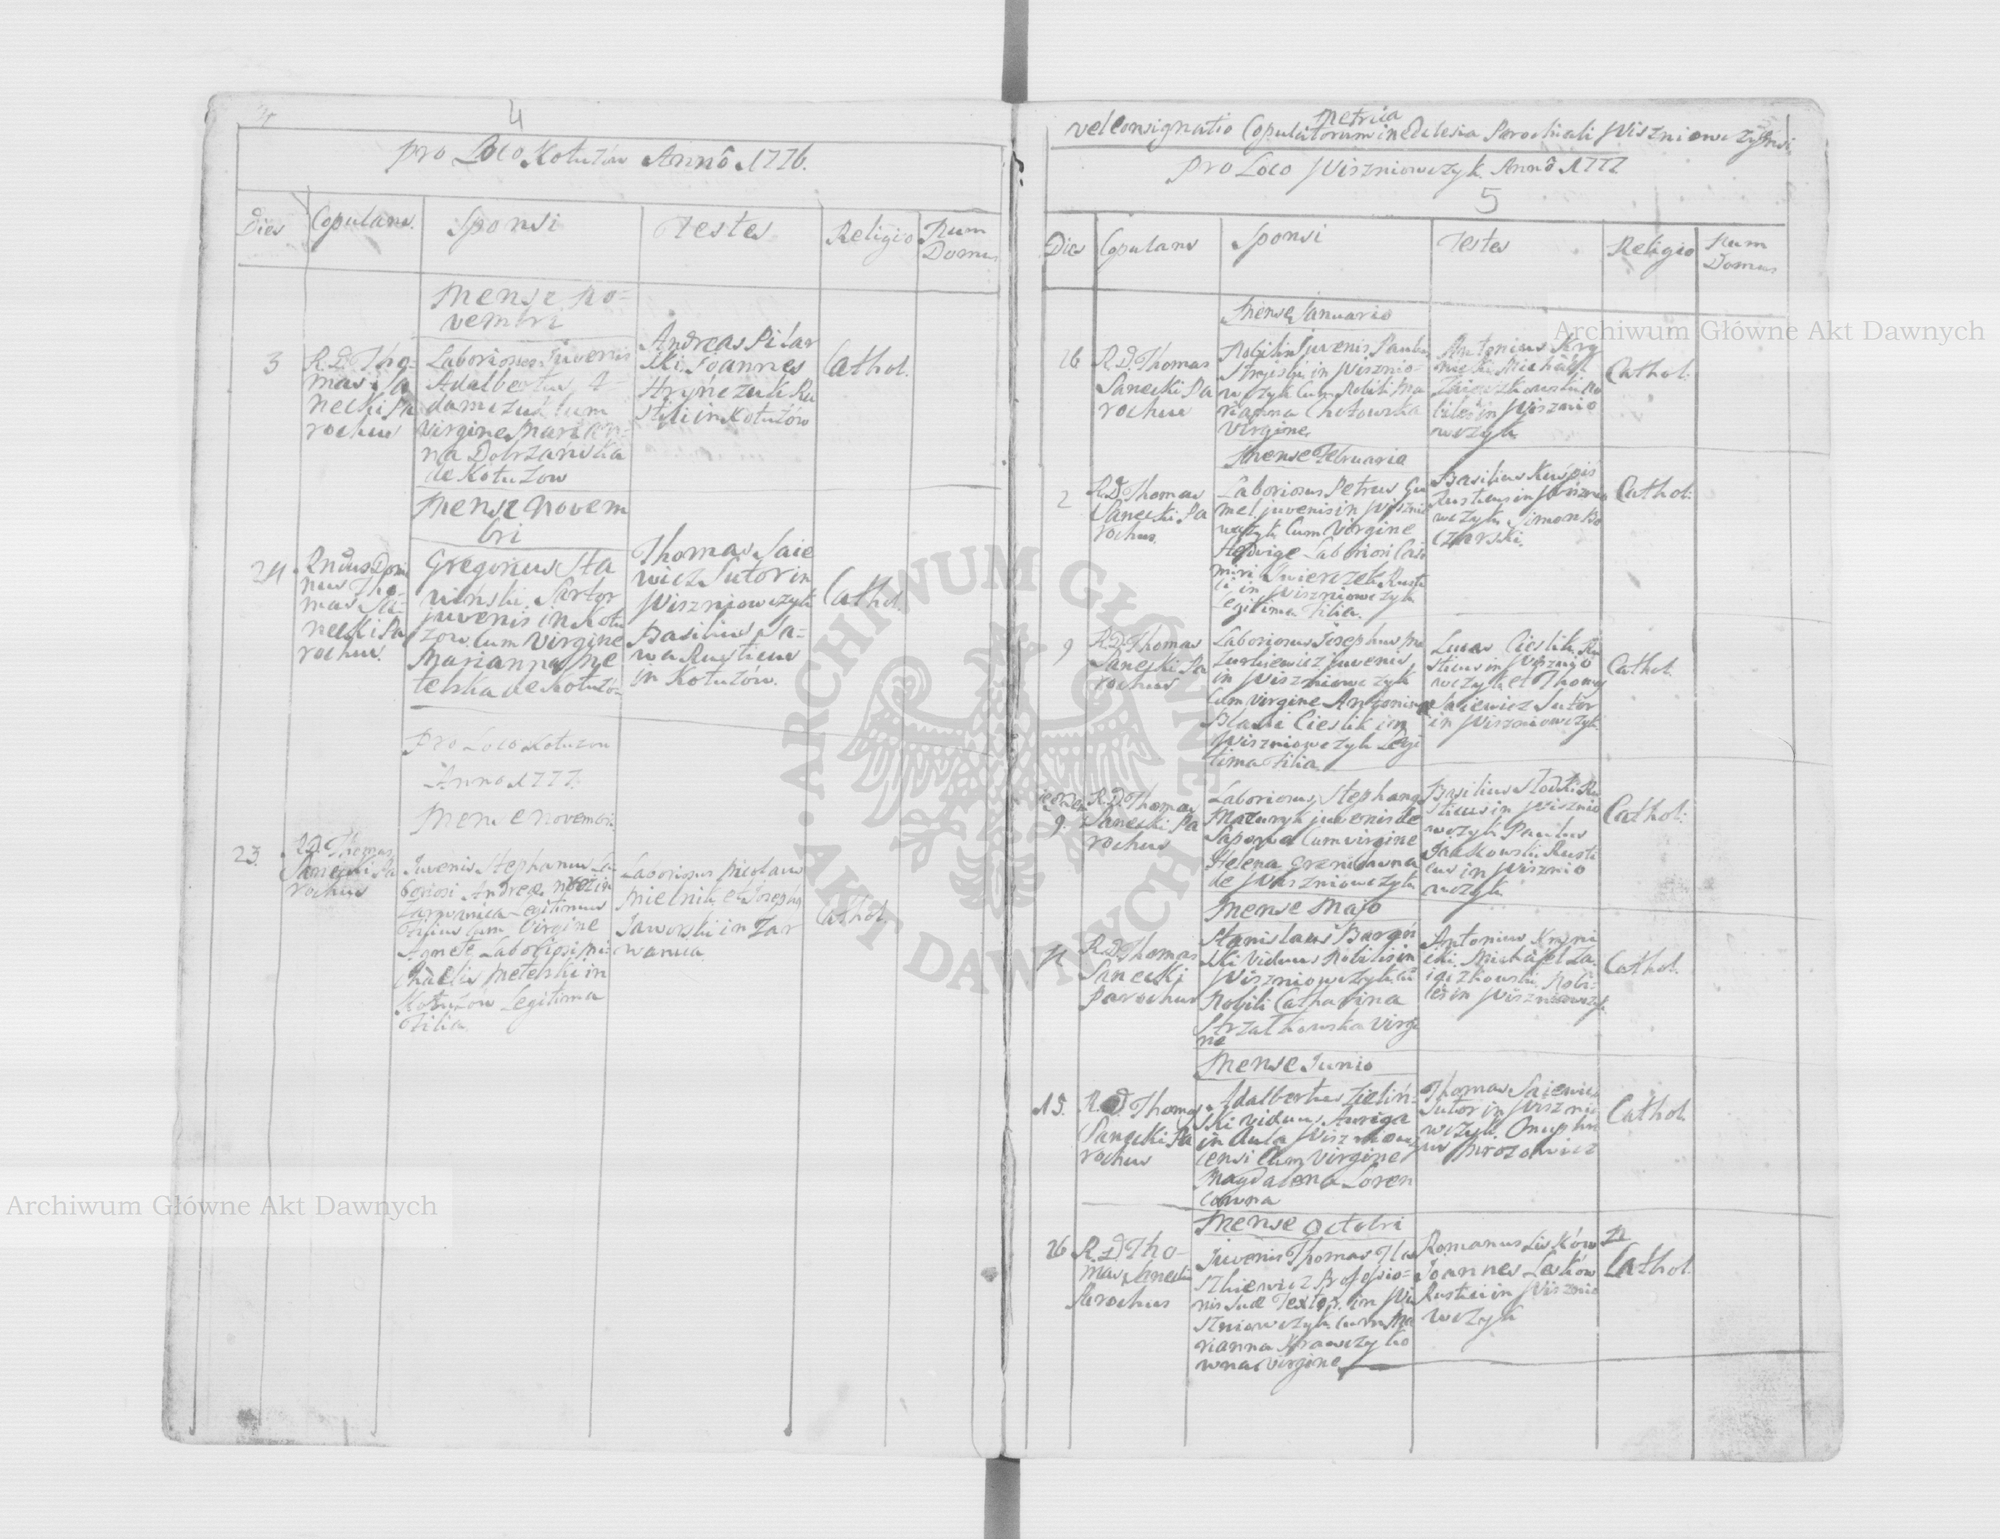 4
pro Loco Kotuzów Annô 1776.
Dies Copulans. Sponsi Testes Religio Num Domus
Mense No=
vembri
3
R.D. Tho=
mas Sa
necki Pa
rochus
Laboriosus Juvenis
Adalbertus A=
damczuk cum
Virgine Marian=
na Dobrzańska
de Kotuzow
Andreas Pilar
ski. Joannes
Hryńczuk Ru
stici in Kotuzów
Cathol.
Mense Novem
bri
24
Rndus Domi
nus Tho
mas Sa=
necki Pa
rochus.
Gregorius Sta
Sartor
juvenis in Kotu
zow cum Virgine
Marianna Me
telska de Kotuzó
Thomas Saie
wicz Sutor in
Wiszniowczyk
Basilius Sa=
wa Rusticus
in Kotuzów.
Cathol.
Pro Loco Kotuzow
Anno 1777.
Mense Novembri
23.
R.D. Thomas
Sanecki Pa
rochus
Juvenis Stephanus La=
boriosi Andreæ
Zarwanica Legitimus
Filius cum Virgine
Agnete Laboriosi Mi=
chaelis Metelski in
Kotuzów Legitima
Filia.
Laboriosus Nicolaus
Mielnik et Josephus
Jaworski in Zar
wanica
Cathol.
Metrica
vel Consignatio Copulatorum in Ecclesia Parochiali Wiszniowczyensi
Pro Loco Wiszniowczyk Annô 1777
5
Dies Copulans Sponsi Testes Religio Num Domus
Mense Januario
26
R.D. Thomas
Sanecki Pa
rochus
Nobilis Juvenis Paulus
in Wisznio=
wczyk Cum Nobili Ma
rianna Chotowska
Virgine
Antonius Kry
nicki Michael
Zaigczkowski No
biles in Wisznio
wczyk
Cathol:
Mense Februario
2
R.D. Thomas
Sanecki Pa
rochus.
Laboriosus Petrus Gu
mel juvenis in Wisznio
wczyk Cum Virgine
Hedvige Laboriosi Casi
miri Swierczek Rusti
ci in Wiszniowczyk
Legitima Filia.
Basilius Kuśpis
Rusticus in Wisznio
wczyk Simon Bo
czarski.
Cathol:
9
R.D. Thomas
Sanecki Pa
rochus
Laboriosus Josephus Ma
zurkiewicz Juvenis
in Wiszniowczyk
cum Virgine Antonina
Blasii Cieslik in
Wiszniowczyk Legi
tima Filia
Lucas Cieslik Ru
sticus in Wisznio
wczyk et Thomas
Saiewicz Sutor
in Wiszniowczyk
Cathol.
9.
R.D. Thomas
Sanecki Pa
rochus
Laboriosus Stephanus
Mazuryk juvenis de
Sapowa Cum Virgine
Helena
de Wiszniowczyk
Basilius Słodki Ru
sticus in Wisznio
wczyk Paulus
Jankowski Rusti
cus in Wisznio
wczyk
Cathol:
Mense Majo
R.D. Thomas
Sanecki
Parochus
Stanislaus
ski Viduus Nobilis in
Wiszniowczyk cu
Nobili Catharina
Strzałkowska Virgi
ne
Antonius Kryni
cki. Michael Za
igczkowski Nobi=
les in Wiszniowczyk
Cathol.
Mense Junio
15.
R.D. Thomas
Sanecki Pa
rochus
Adalbertus Zieliń=
ski viduus Auriga
in Aula Wiszniowczy
censi Cum Virgine
Magdalena Loren
cowna
Thomas Saiewicz
Sutor in Wisznio
wczyk. Onuphri
us Mrozowicz
Cathol.
Mense Octobri
26
R.D. Tho=
mas Sanecki
Parochus
Juvenis Thomas
Professio=
nis suæ Textor. in Wi
szniowczyk cum Ma
rianna Krawczyko
wna Virgine
Romanus Lisków
Joannes Lesków
Rustici in Wisznio
wczyk
Cathol.
Archiwum Główne Akt Dawnych
Archiwum Główne Akt Dawnych
ARCHIWUM GŁÓWNE
AKT DAWNYCH